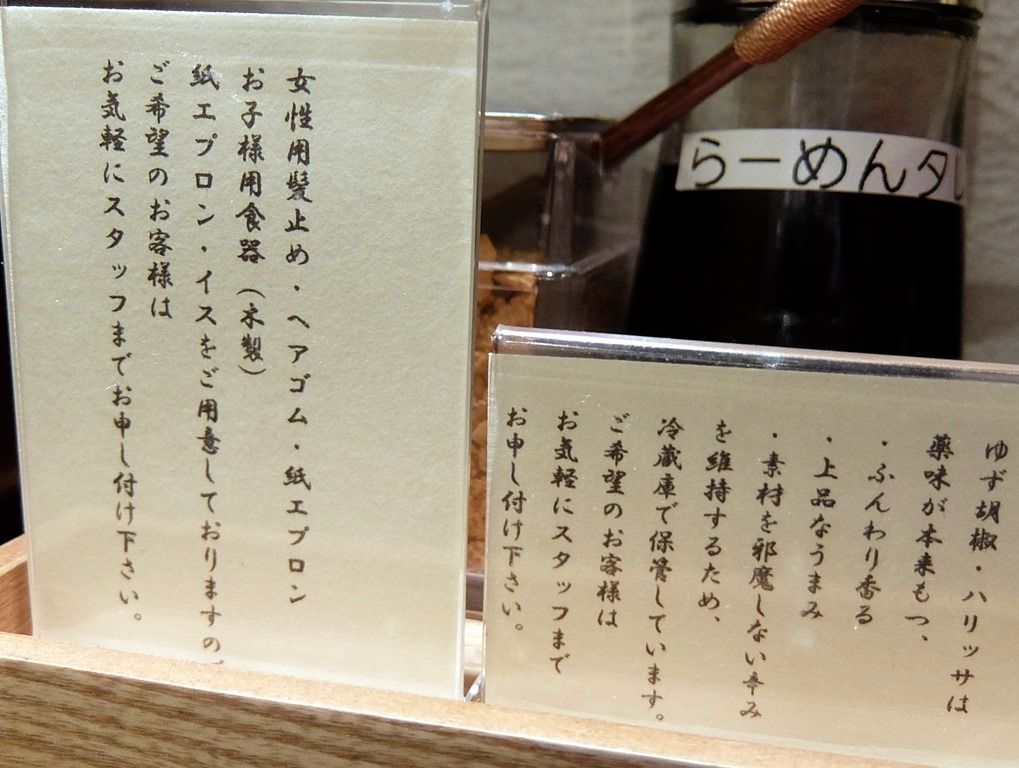 女性用髪止め・ヘアゴム・紙エプロン
お子様用食器(木製)
紙エプロン・イスをご用意しておりますの
ご希望のお客様は
お気軽にスタッフまでお申し付け下さい。
らーめんタレ
ゆず胡椒・ハリッサは
薬味が本来もつ、
・ふんわり香る
・上品なうまみ
・素材を邪魔しない辛み
を維持するため、
冷蔵庫で保管しています。
ご希望のお客様は
お気軽にスタッフまで
お申し付け下さい。